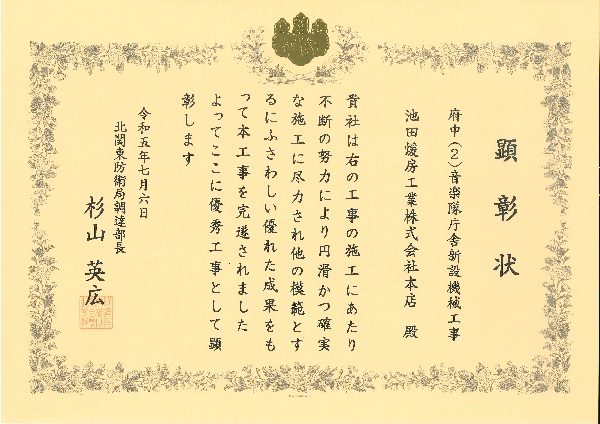 顕彰状
府中(2)音楽隊庁舎新設機械工事
池田煖房工業株式会社本店 殿
貴社は右の工事の施工にあたり
不断の努力により円滑かつ確実
な施工に尽力され他の模範とす
るにふさわしい優れた成果をも
って本工事を完遂されました
よってここに優秀工事として顕
彰します
令和五年七月六日
北関東防衛局調達部長
杉山 英広